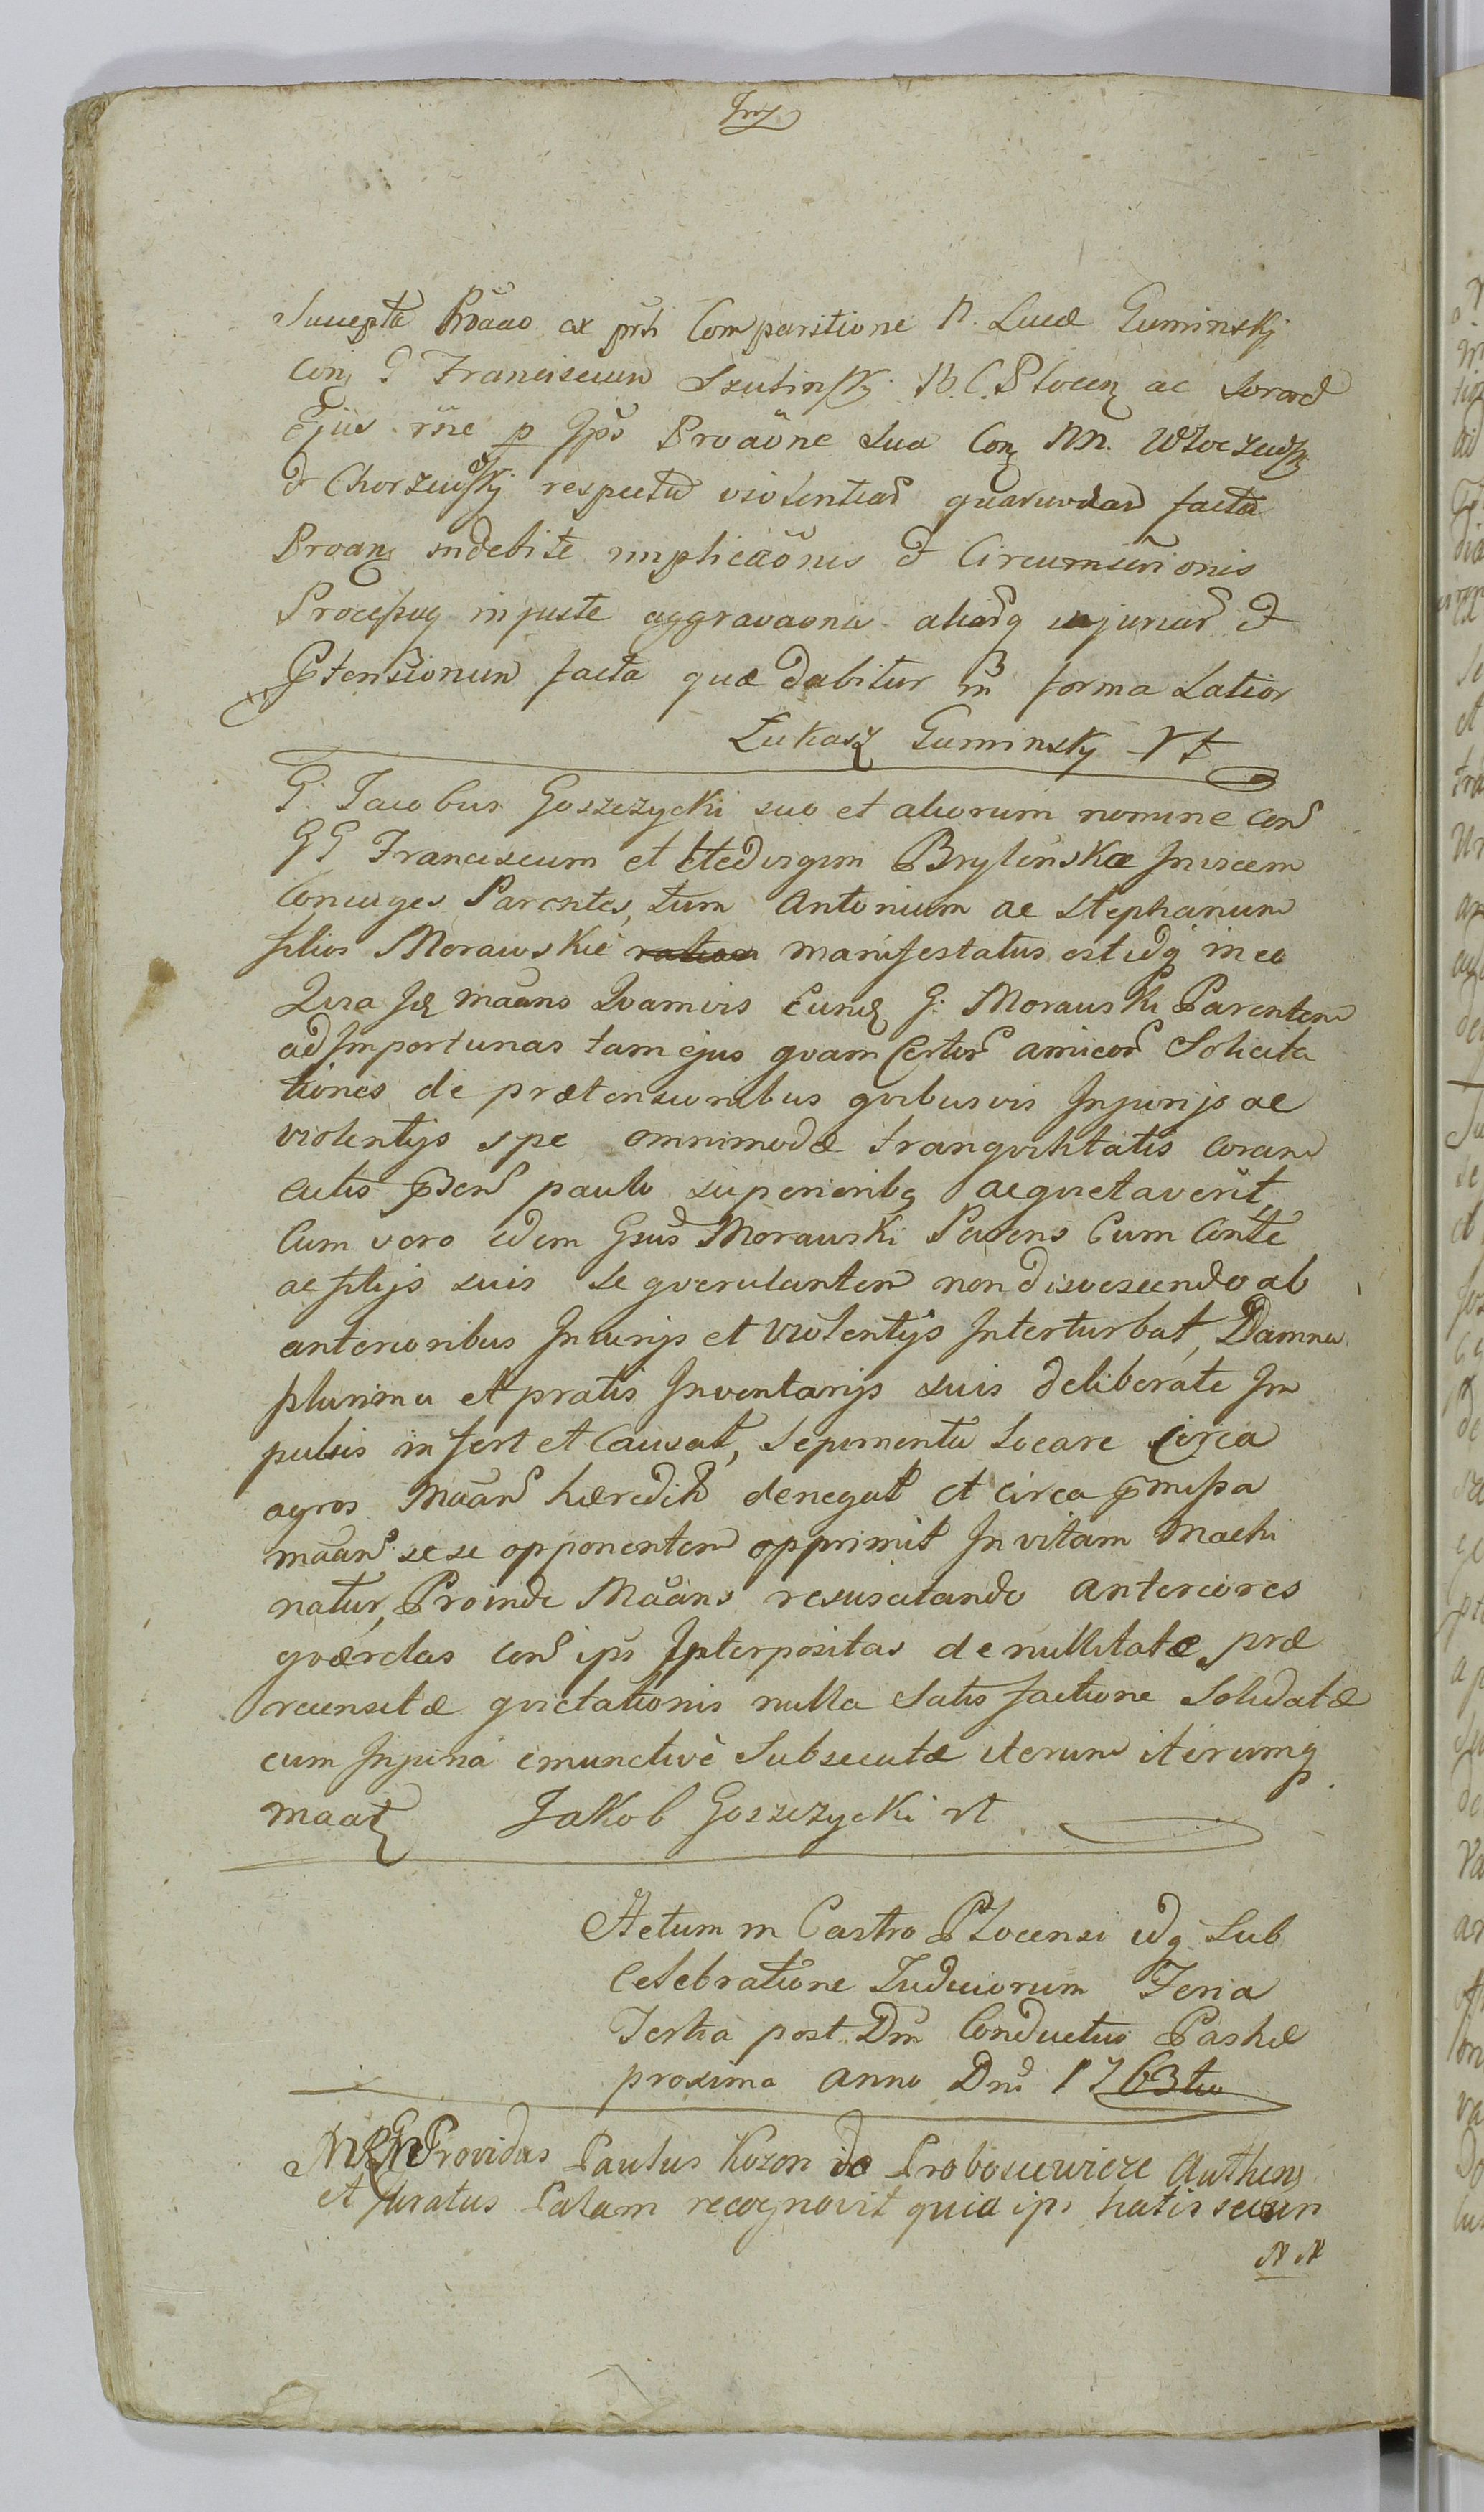 Suscepta Prõaao ex prti Comparitione N. Lucæ Guminskj
Con G Franciscum Szulinskj B. C. Plocen ac Soror
Ejus rñe p Ips Proaõne sua Con NN. Włoczewskj
et Chorzewskj respectu violentiar quarundar facta
Proan indebite implicaõnis et Circumscrionis
Processuq injuste aggravaonis aliarq injuriar et
Ptensionum facta quæ dabitur in forma Latior
Łukasz Guminsky
G. Jacobus Goszczycki suo et aliorum nomine con
GG Franciscum et Hedvigim Brylinskæ Invicem
Coniuges Parentes, tum Antonium ac Stephanum
filios Morawskie manifestatus est idq in eo
Quia Id mãans Qvamvis Eund G. Morawski Parentem
ad Importunas tam ejus qvam Certor amicor Solicita
tiones de prætensionibus qvibusvis Injurijs ac
violentijs spe omnimodæ tranqvilitatis coram
actis psen paulo superioribq aeqvietaverit,
Cum vero idem Gsus Morawski Parens Cum Conte
ac filijs suis se qverulantem non disvescendo ab
anterioribus Injurijs et violentijs Interturbat, Damna
plurima et pratis Inventarijs suis deliberate Im
pulsis infert et Causat, Sepimenta Locare circa
agros Mãan hæredit denegat et circa pmissa
mãan sese opponentem opprimit In vitam Machi
natur, Proinde Mãans resuscitando anteriores
qværelas con ips Interpositas de nullitatæ præ
recensitæ qvietationis nulla Satisfactione Solidatæ
cum Injuria emunctivè Subsecutæ iterum iterumq
maat Jakob Goszczycki
Actum in Castro Plocensi idq Sub
Celebratione Judiciorum Feria
Tertia post Dm Conductus Paschæ
proxima Anno Dni 1763tio
Providus Paulus Kozon de Proboscewicze Authen
et Juratus Palam recognovit quia ips